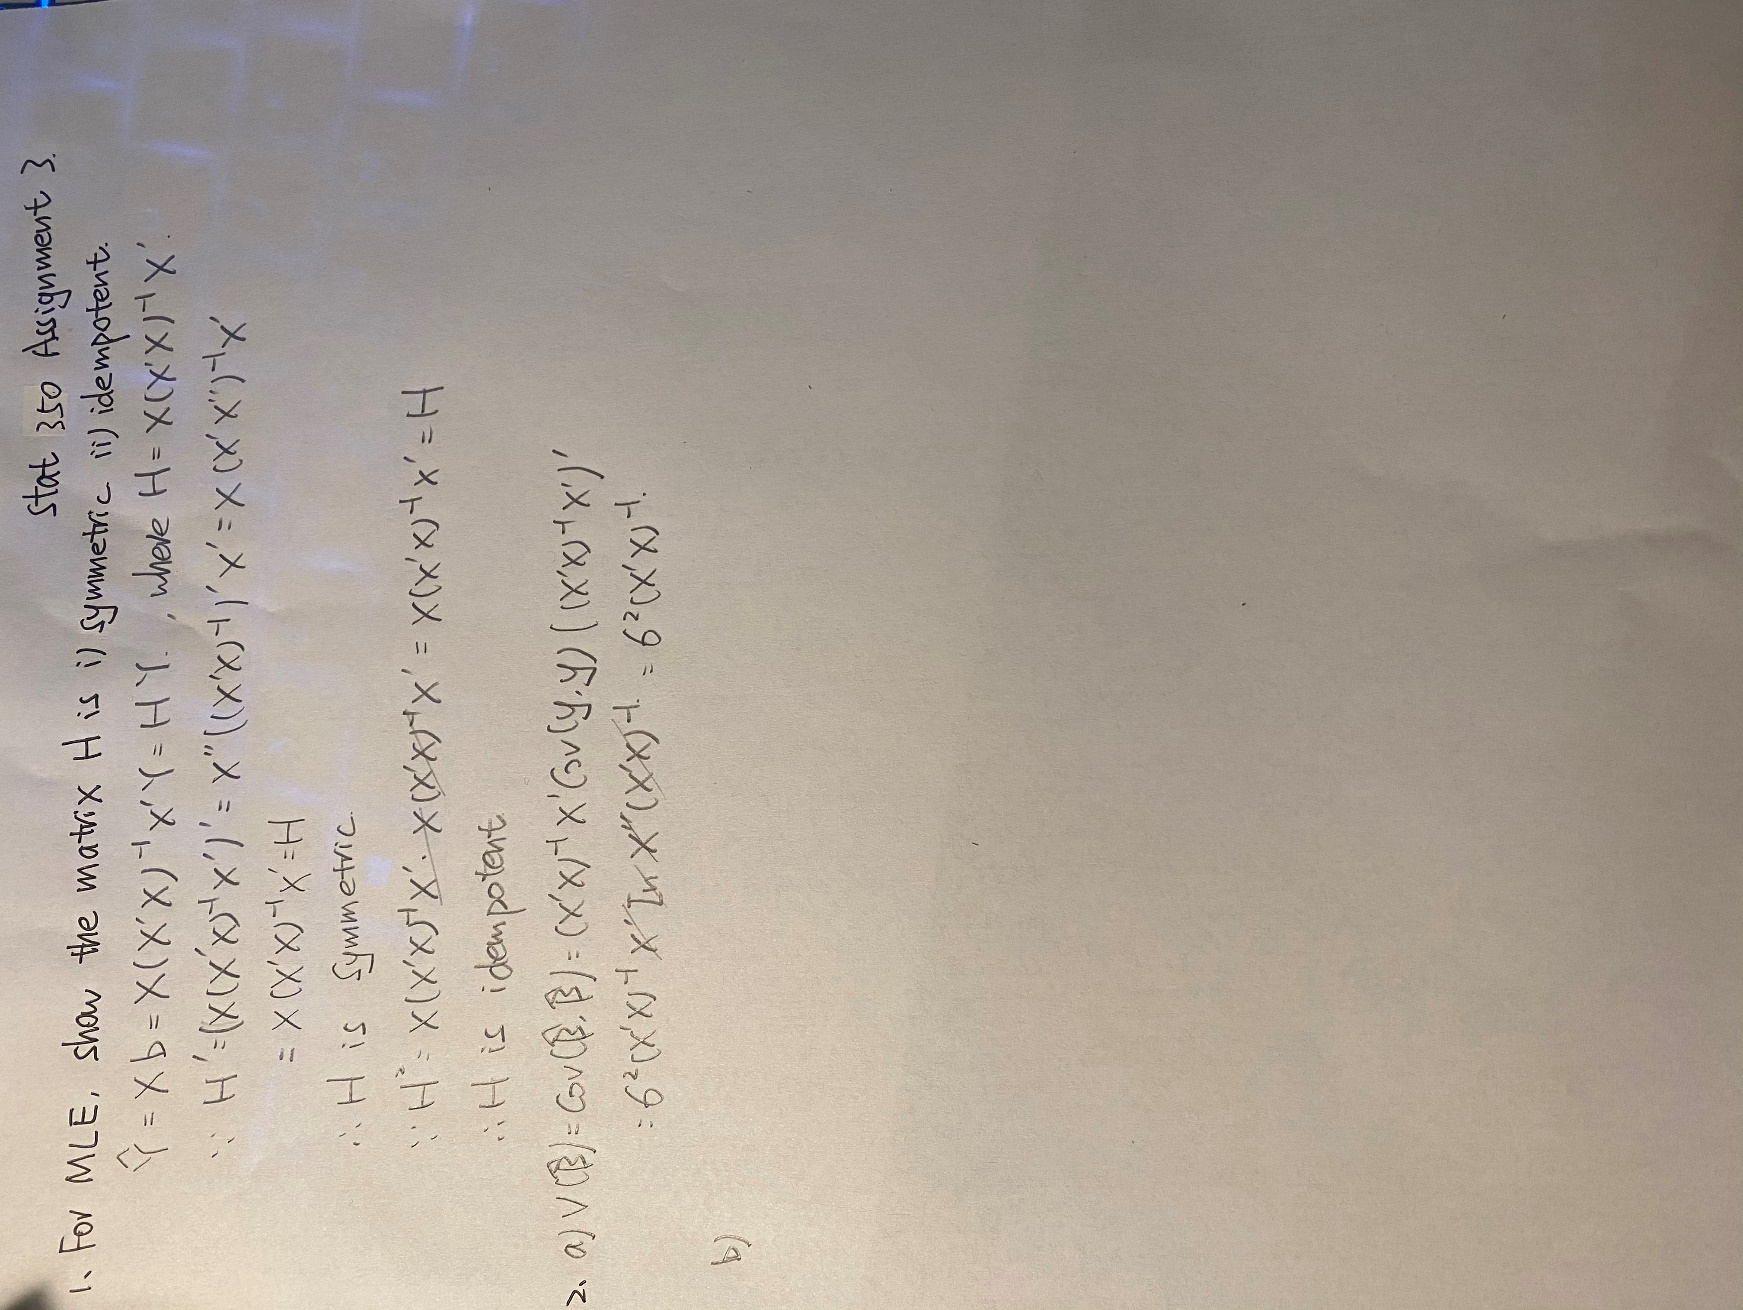 Stat 350 Assignment 3.
1. For MLE, show the matrix H is i) symmetric ii) idempotent.
Ŷ = Xb = X(X'X)⁻¹X'Y = HY. , where H = X(X'X)⁻¹X'.
∵ H' = (X(X'X)⁻¹X')' = X''((X'X)⁻¹)'X' = X(X'X'')⁻¹X'
= X(X'X)⁻¹X' = H
∴ H is symmetric
∵ H² = X(X'X)⁻¹X'·X(X'X)⁻¹X' = X(X'X)⁻¹X' = H
∴ H is idempotent.
2. a) V(β̂) = Cov(β̂, β̂) = (X'X)⁻¹X'Cov(y,y)((X'X)⁻¹X')'
= 6²(X'X)⁻¹X'InX''(X'X)⁻¹. = 6²(X'X)⁻¹.
b)